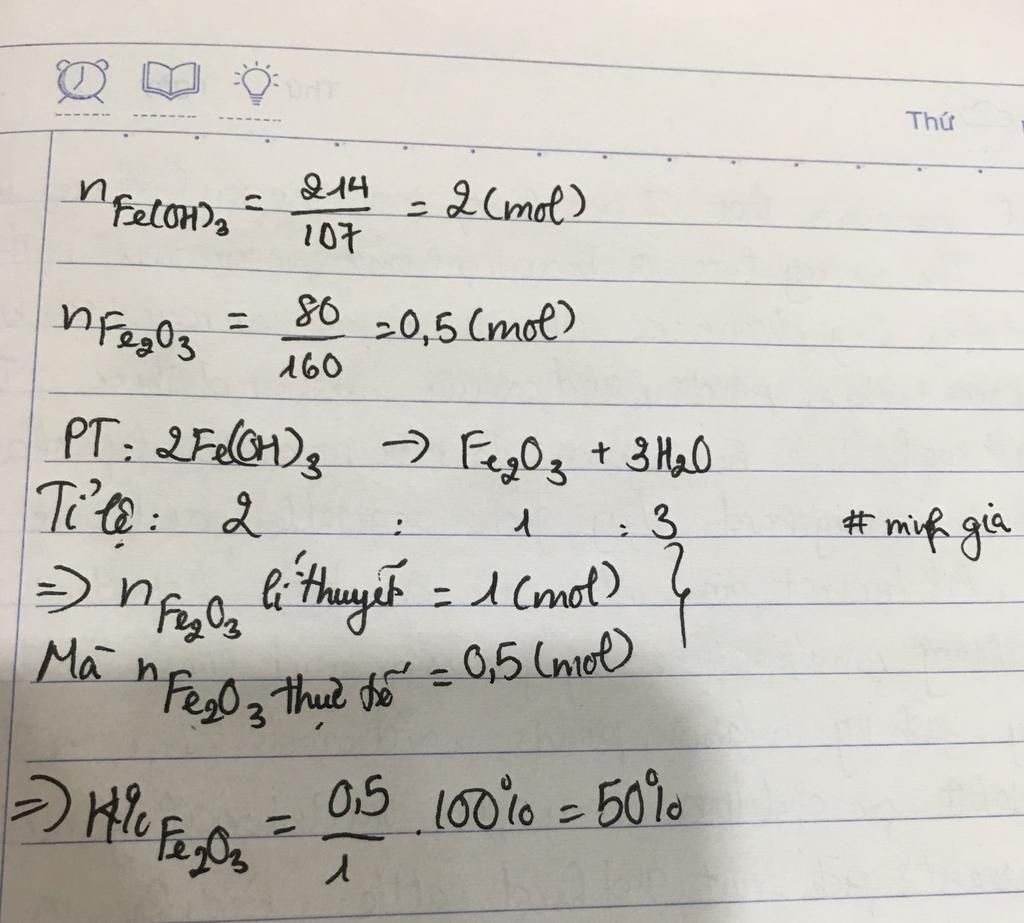 Thứ
n Fe(OH)3 = 214/107 = 2 (mol)
n Fe2O3 = 80/160 = 0,5 (mol)
PT: 2Fe(OH)3 → Fe2O3 + 3H2O
Tỉ lệ: 2 : 1 : 3 # minh gia
=> n Fe2O3 lí thuyết = 1 (mol) }
Mà n Fe2O3 thực tế = 0,5 (mol)
=> H% Fe2O3 = 0,5/1 . 100% = 50%